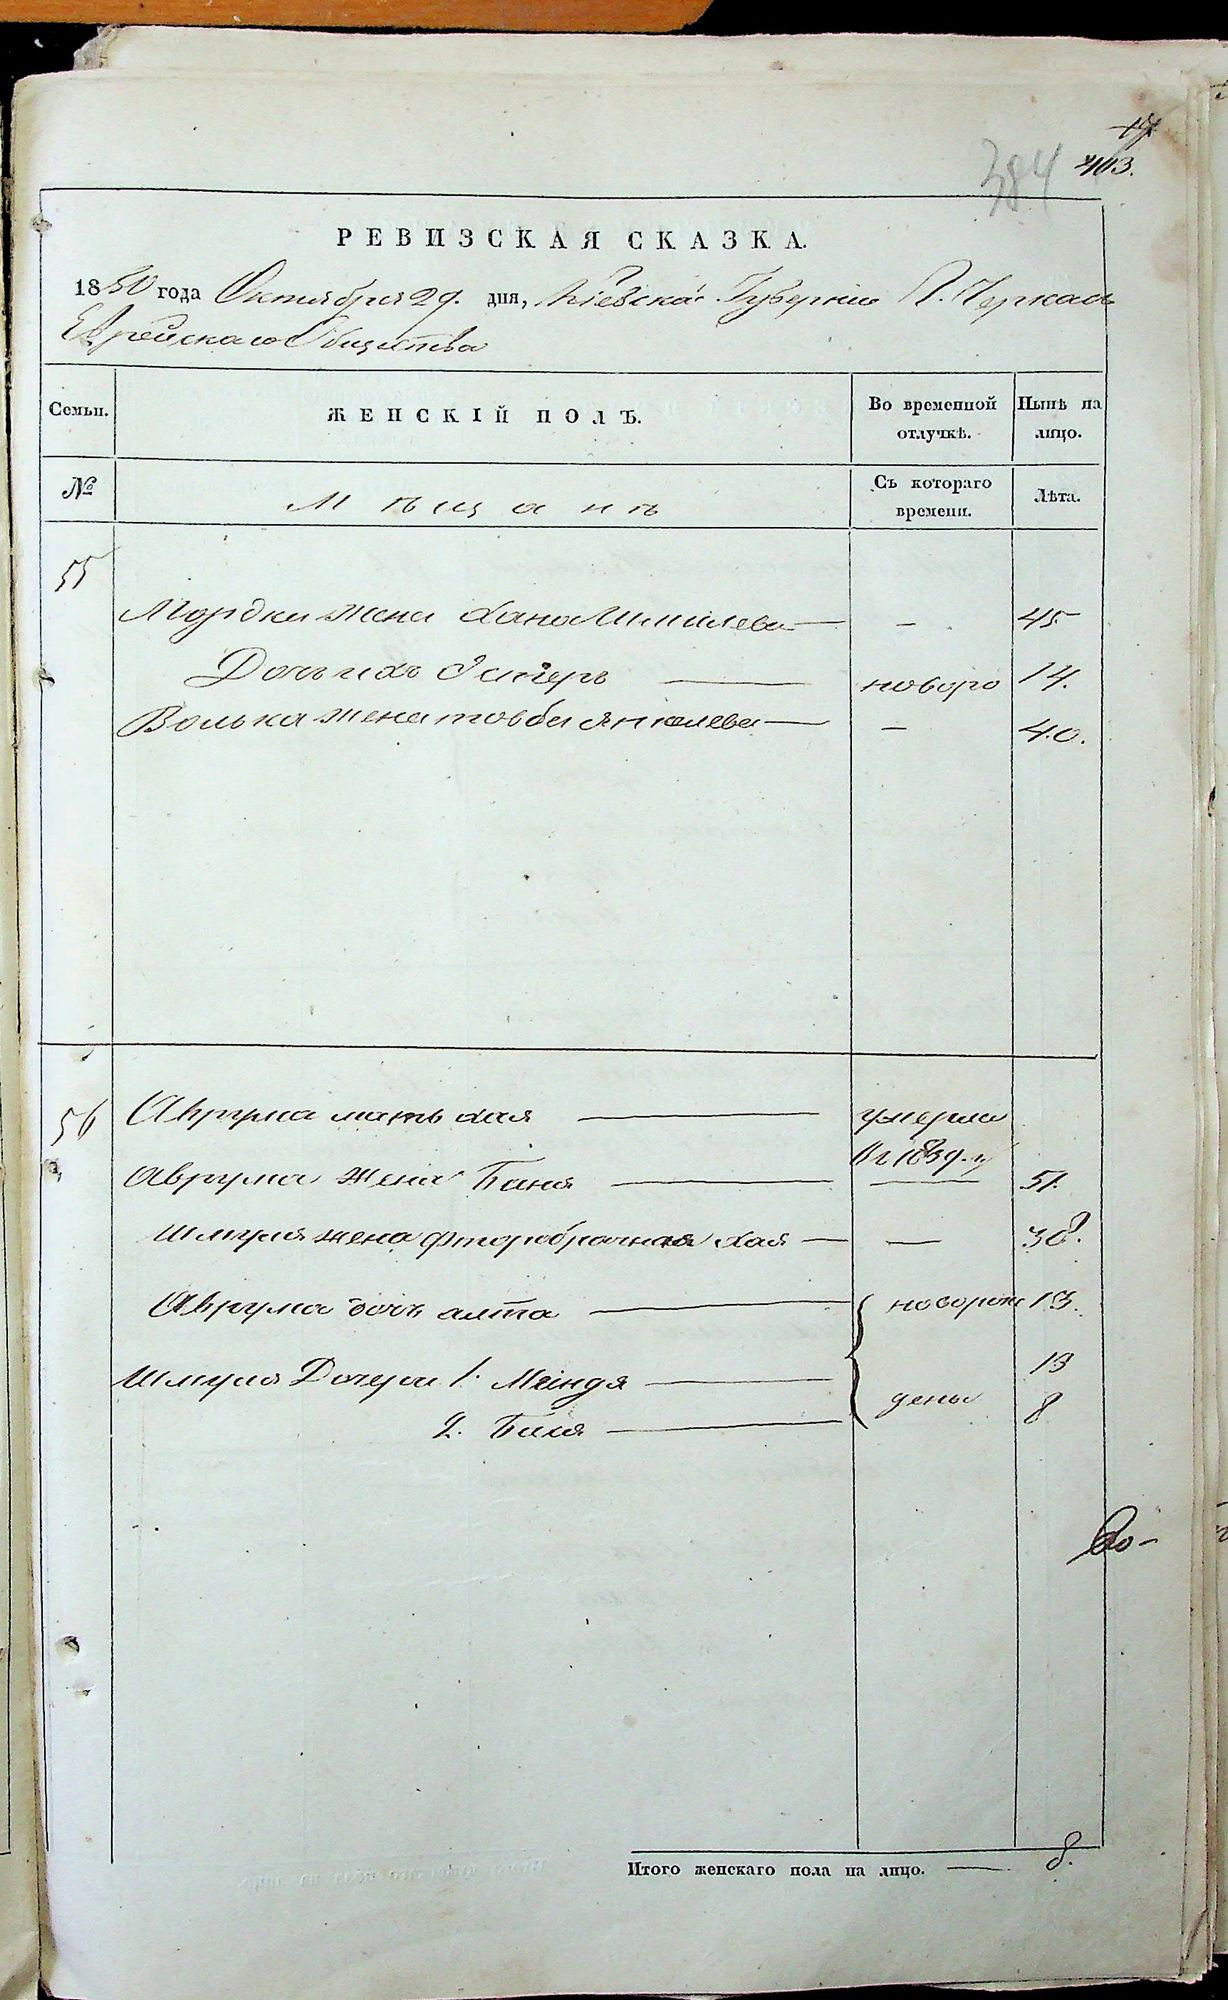 403.
384
РЕВИЗСКАЯ СКАЗКА.
1850 года Октября 29. дня, Кіевской Губерніи Г. Черкасъ
Еврейскаго Общества
Семьи. ЖЕНСКІЙ ПОЛЪ. Во временной отлучкѣ. Нынѣ на лицо.
№ Мѣщанѣ Съ котораго времени. Лѣта.
55
Мордки жена Хана Шмилева — — 45
Дочь ихъ Эстеръ — новоро 14.
Волька жена товба Янкелева — — 40.
56 Аврума мать хая — умерла
въ 1839. г
Аврума жена Баня — — 51.
Шмуля жена фторобрачная хая — — 38.
Аврума дочь алта — новорож 13.
Шмуля Дочери 1. Меіндя — 13
дены
2. Баля — 8
Во-
Итого женскаго пола на лицо. — 8.